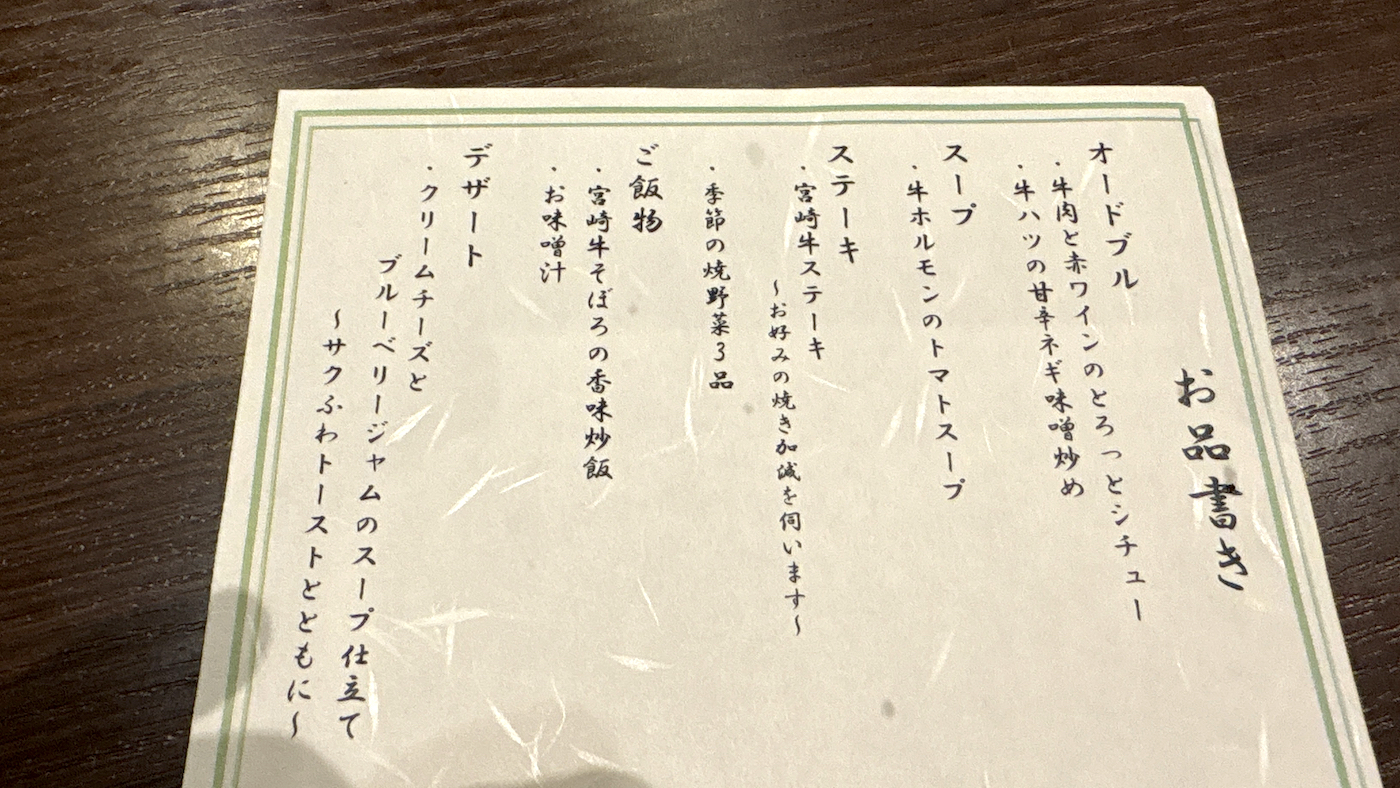 お品書き
オードブル
・牛肉と赤ワインのとろっとシチュー
・牛ハツの甘辛ネギ味噌炒め
スープ
・牛ホルモンのトマトスープ
ステーキ
・宮崎牛ステーキ
～お好みの焼き加減を伺います～
・季節の焼野菜3品
ご飯物
・宮崎牛そぼろの香味炒飯
・お味噌汁
デザート
・クリームチーズと
ブルーベリージャムのスープ仕立て
～サクふわトーストとともに～